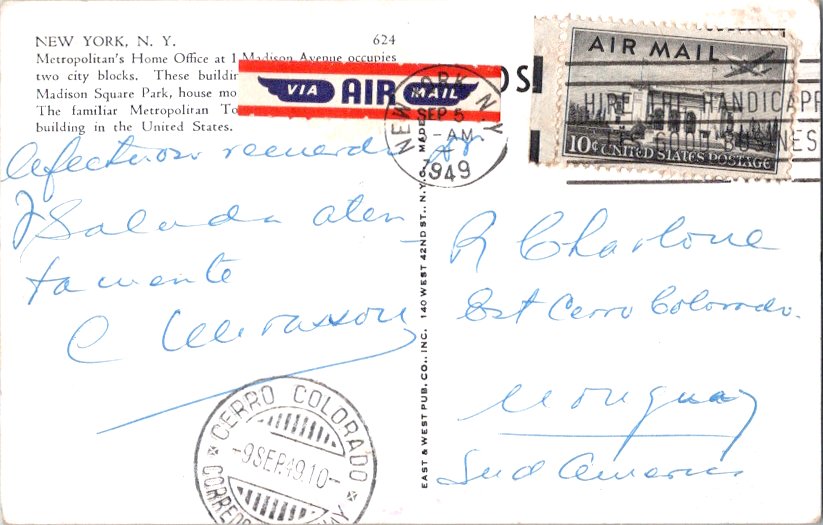 NEW YORK, N. Y. 624
Metropolitan's Home Office at 1 Madison Avenue occupies
two city blocks. These buildin
Madison Square Park, house mo
The familiar Metropolitan To
building in the United States.
VIA AIR MAIL
NEW YORK, N.Y.
SEP 5
-AM
1949
AIR MAIL
10¢ UNITED STATES POSTAGE
HIRE THE HANDICAPP
GOOD BUSINES
afectuoso recuerdo
y Saluda aten
tamente
C
R Charlone
Est Cerro Colorado.
Uruguay
Sud America
EAST & WEST PUB. CO., INC. 140 WEST 42ND ST., N.Y.C. MADE
CERRO COLORADO
-9SEP.49.10-
CORREOS